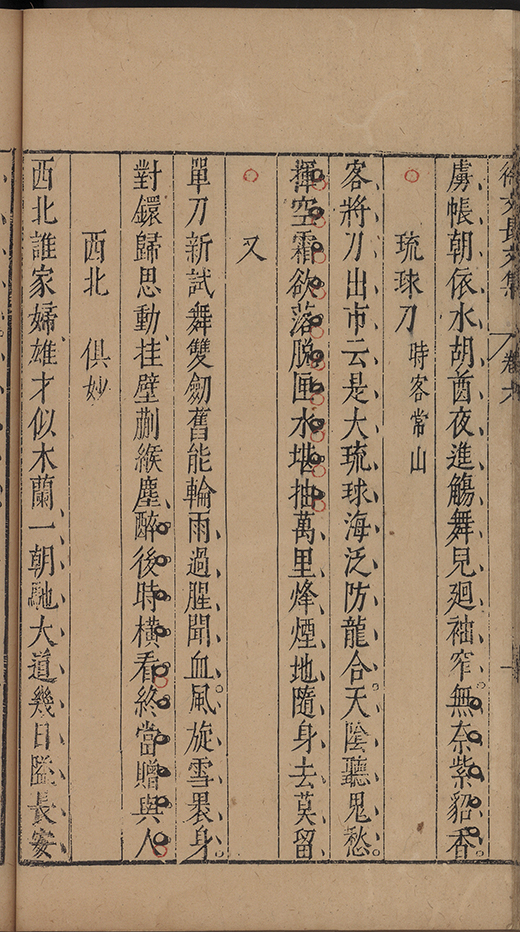 徐文長文集 卷六
虜帳朝依水胡酋夜進觴舞見廻袖窄無奈紫貂香
琉球刀 時客常山
客將刀出市云是大琉球海泛防龍合天陰聽鬼愁
揮空霜欲落脫匣水堪抽萬里烽煙地隨身去莫留
又
單刀新試舞雙劒舊能輪雨過腥聞血風旋雪裹身
對鐶歸思動挂壁蒯緱塵醉後時橫看終當贈與人
西北 俱妙
西北誰家婦雄才似木蘭一朝馳大道幾日隘長安